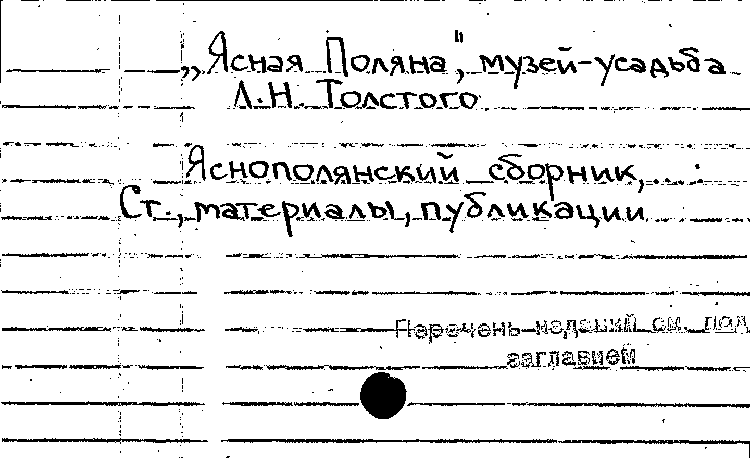 „Ясная Поляна", музей-усадьба
Л.Н. Толстого
Яснополянский сборник,... :
Ст., материалы, публикации
Перечень изданий см. под
заглавием